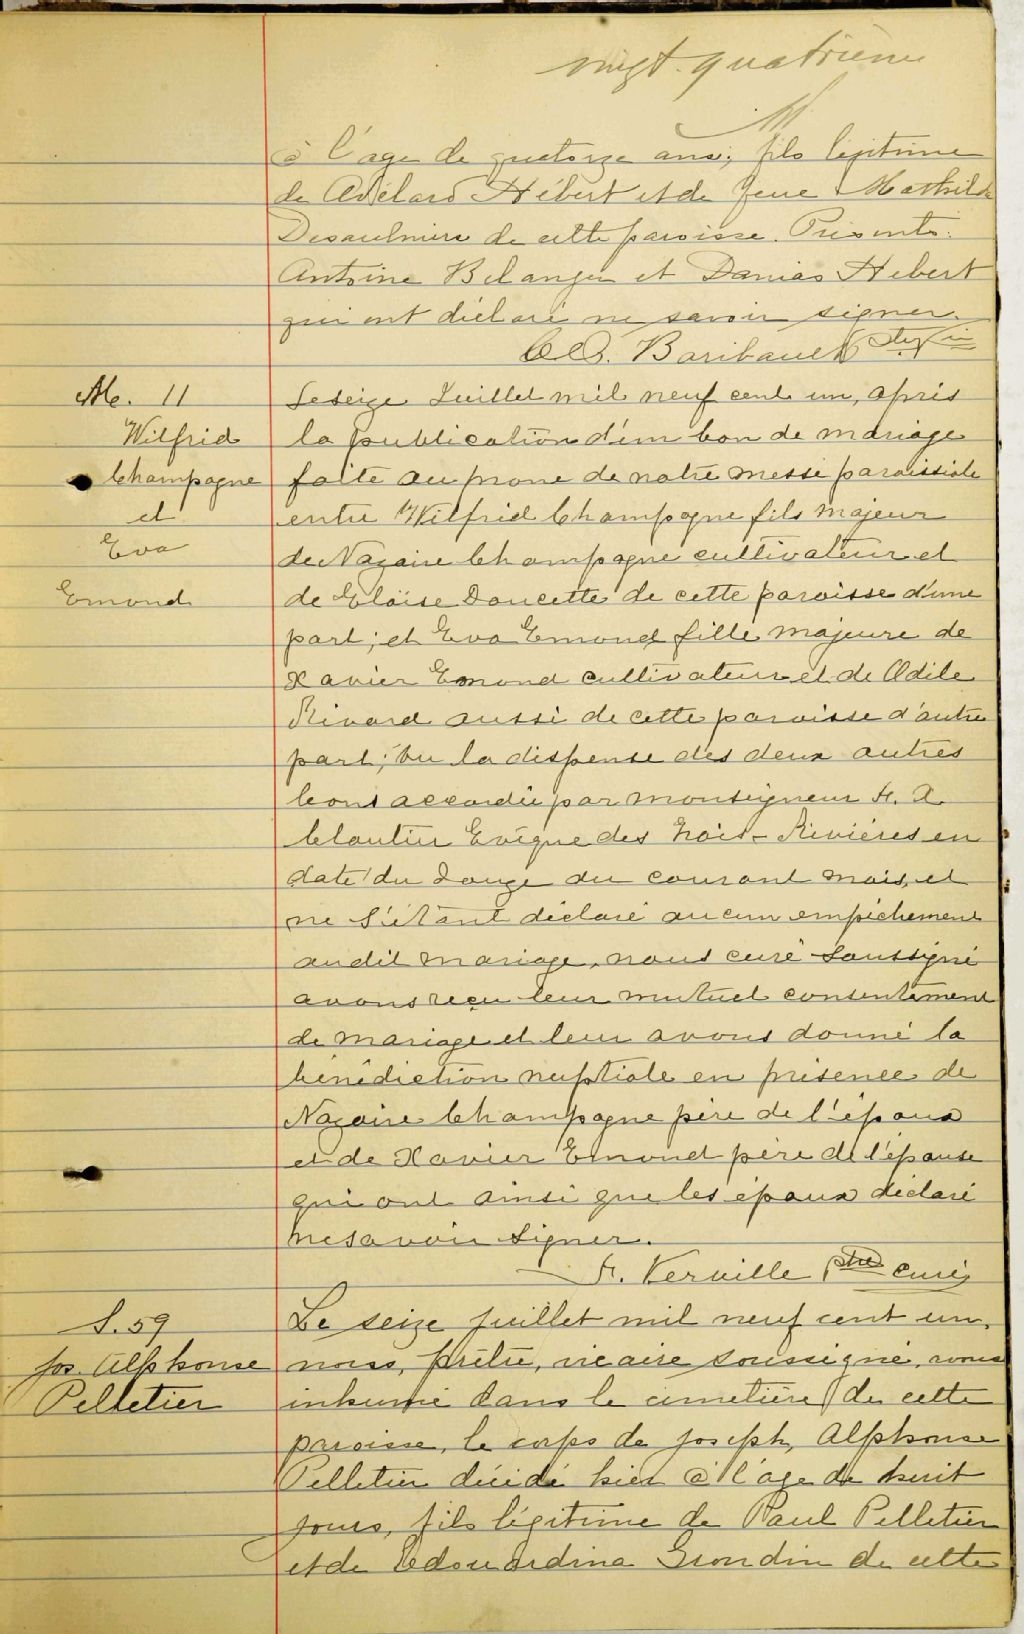 vingt-quatrième
à l'age de quatorze ans, fils légitime
de Adélard Hébert et de feue Mathilde
Desaulniers de cette paroisse. Présents:
Antoine Belanger et Damias Hebert
qui ont déclaré ne savoir signer.
Baribault ptre
M. 11
Wilfrid
Champagne
et
Eva
Emond
Le seize Juillet mil neuf cent un, après
la publication d'un ban de mariage
faite au prone de notre messe paroissiale
entre Wilfrid Champagne fils majeur
de Nazaire Champagne cultivateur et
de Eloïse Doucette de cette paroisse d'une
part; et Eva Emond fille majeure de
Xavier Emond cultivateur et de Odile
Rivard aussi de cette paroisse d'autre
part; vu la dispense des deux autres
bans accordée par monseigneur F. X.
Cloutier Evêque des Trois-Rivières en
date du douze du courant mois, et
ne s'étant déclaré aucun empêchement
audit mariage, nous curé soussigné
avons reçu leur mutuel consentement
de mariage et leur avons donné la
bénédiction nuptiale en présence de
Nazaire Champagne père de l'époux
et de Xavier Emond père de l'épouse
qui ont ainsi que les époux déclaré
ne savoir signer.
F. Verville ptre curé
S. 59
Jos. Alphonse
Pelletier
Le seize juillet mil neuf cent un,
nous, prêtre, vicaire soussigné, avons
inhumé dans le cimetière de cette
paroisse, le corps de Joseph, Alphonse
Pelletier décédé hier à l'age de huit
jours, fils légitime de Paul Pelletier
et de Edouardina Grondin de cette